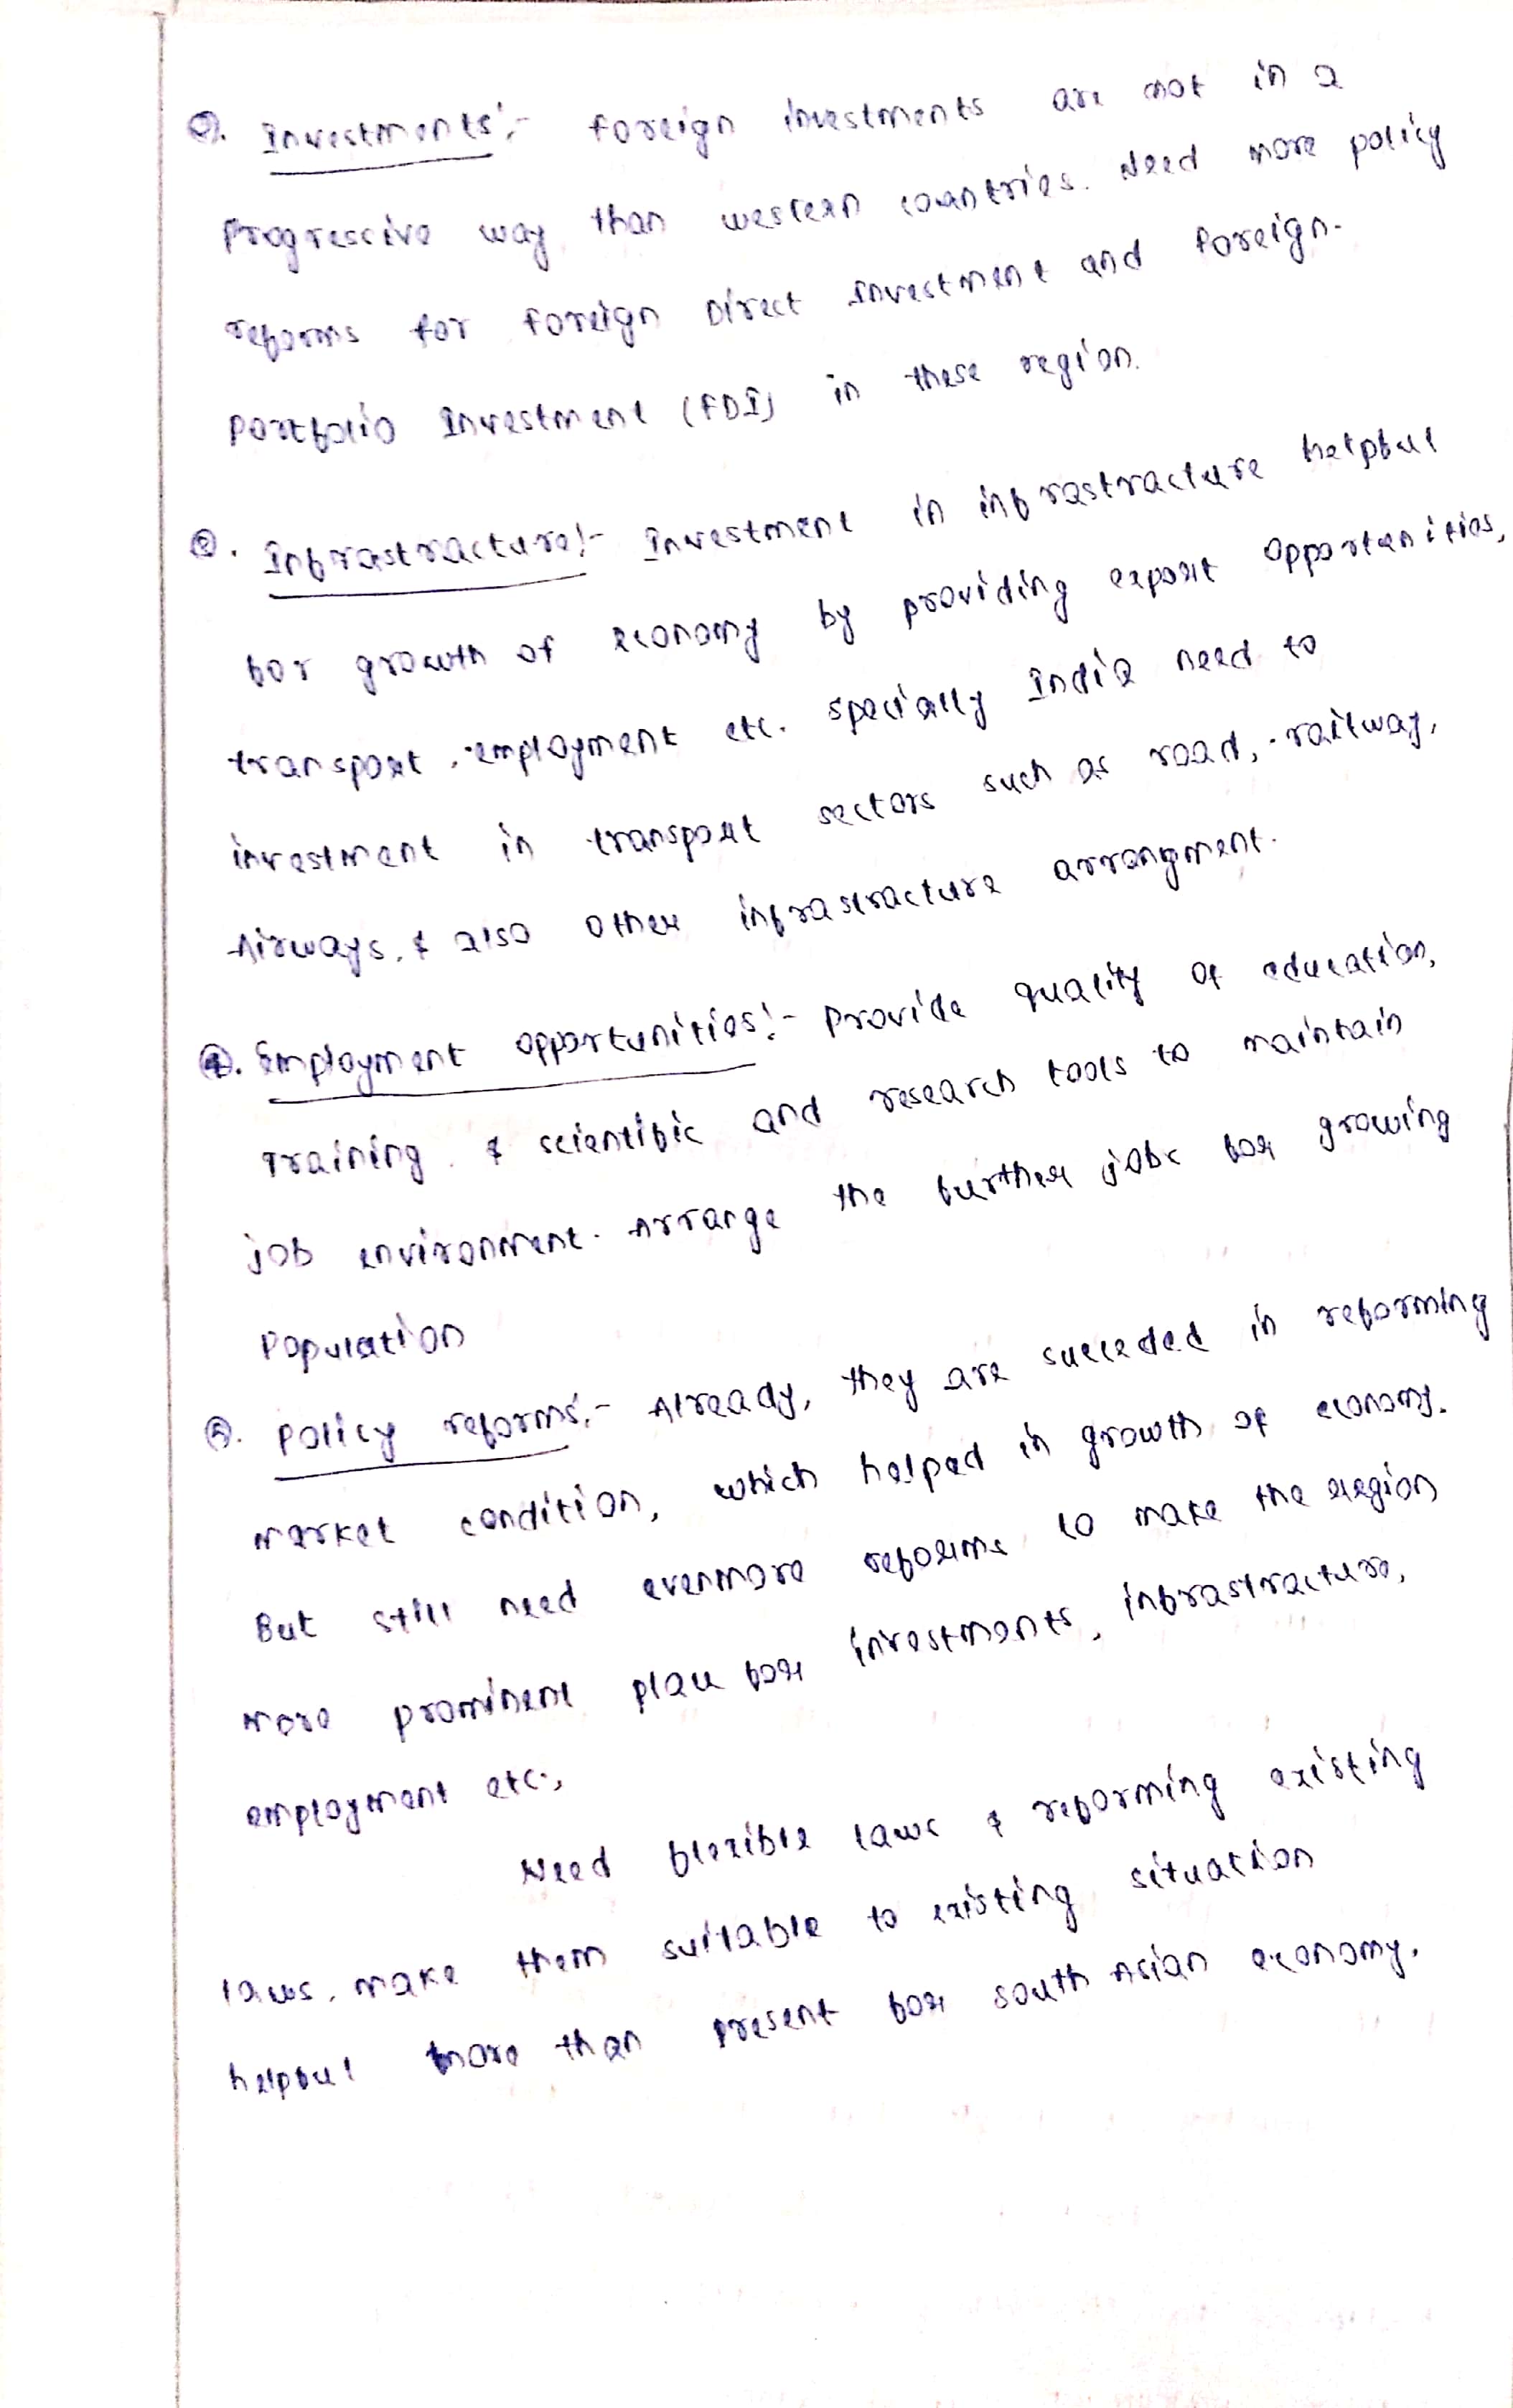 Investments:- foreign investments are not in a
progressive way than western countries. Need more policy
reforms for Foreign Direct Investment and foreign-
Portfolio Investment (FDI) in these region.
Infrastracture:- Investment in infrastracture helpful
for growth of economy by providing export opportunities,
transport, employment etc. specially India need to
investment in transport sectors such as road, railway,
Airways, & also other infrastracture arrangment.
④. Employment opportunities:- provide quality of education,
Training & scientific and research tools to maintain
job environment. Arrange the further jobs for growing
Population
⑤. Policy reforms:- Already, they are succeded in reforming
market condition, which helped in growth of economy.
But still need evenmore reforms to make the region
more prominent place for investments, infrastracture,
employment etc.,
Need flexible laws & reforming existing
laws, make them suitable to existing situation
helpful more than present for south Asian economy.